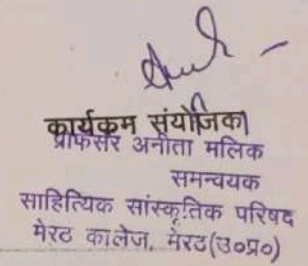 कार्यकम संयोजिका
प्रोफेसर अनीता मलिक
समन्वयक
साहित्यिक सांस्कृतिक परिषद
मेरठ कालेज, मेरठ(उ०प्र०)